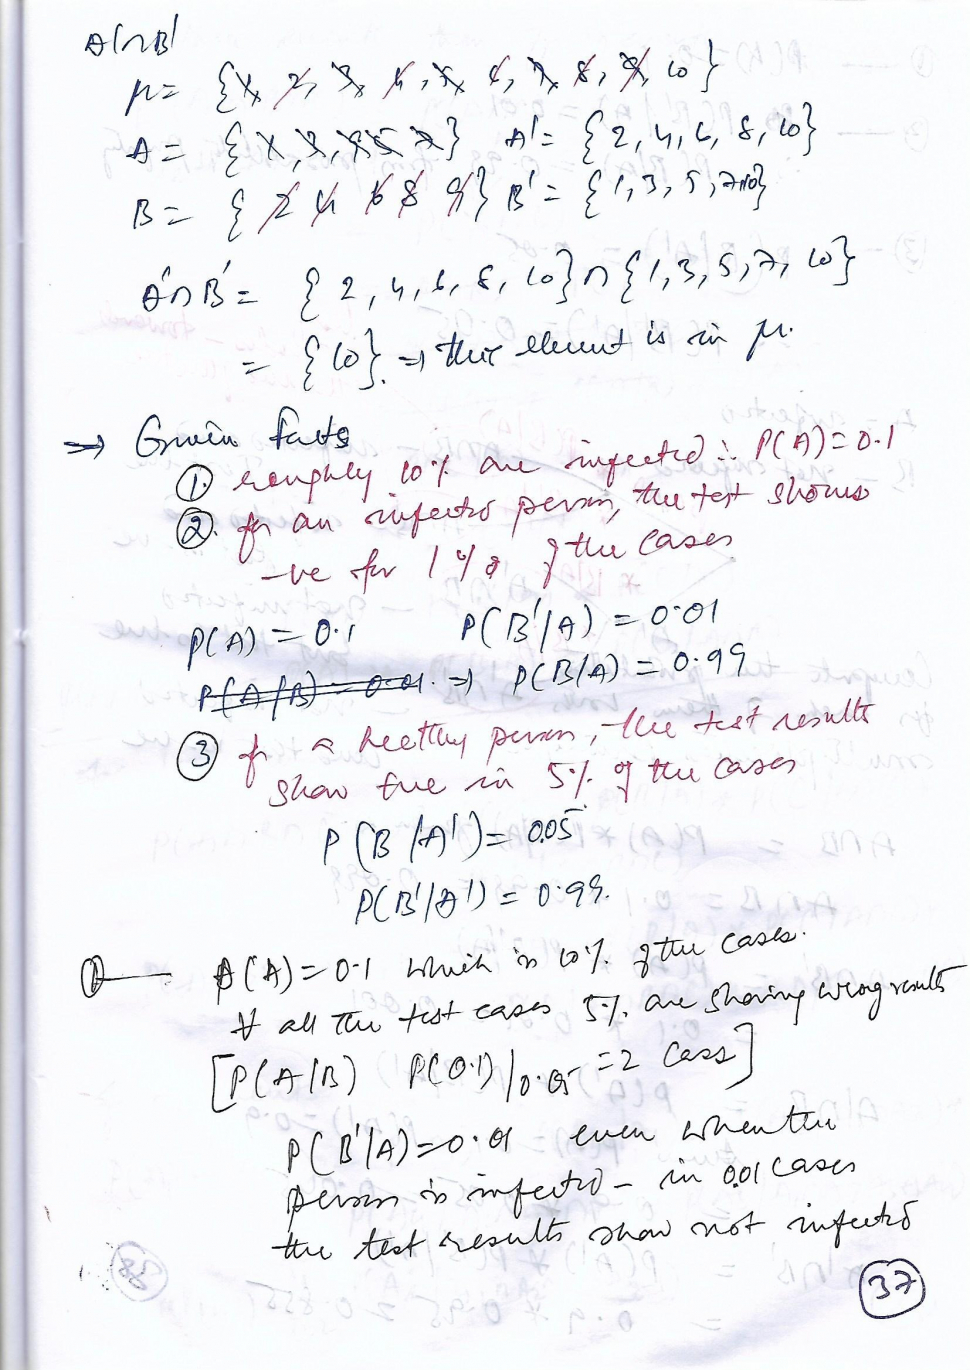 A'∩B'
μ = {1, 2, 3, 4, 5, 6, 7, 8, 9, 10}
A = {1, 3, 5, 7} A' = {2, 4, 6, 8, 10}
B = { 2 4 6 8 9} B' = {1, 3, 5, 7, 10}
A'∩B' = { 2, 4, 6, 8, 10} ∩ {1, 3, 5, 7, 10}
= {10}. → this element is in μ.
→ Given facts
① roughly 10% are infected ∴ P(A) = 0.1
②. for an infected person, the test shows
-ve for 1% of the cases
P(A) = 0.1 P(B'/A) = 0.01
P(A/B) = 0.01. → P(B/A) = 0.99
③ for a healthy person, the test results
show true in 5% of the cases
P(B/A') = 0.05
P(B'/A') = 0.99.
① — P(A) = 0.1 which is 10% of the cases.
If all the test cases 5% are showing wrong results
[P(A/B) P(0.1)/0.05 = 2 Cases]
P(B'/A) = 0.01 even when the
person is infected - in 0.01 cases
the test results show not infected
37